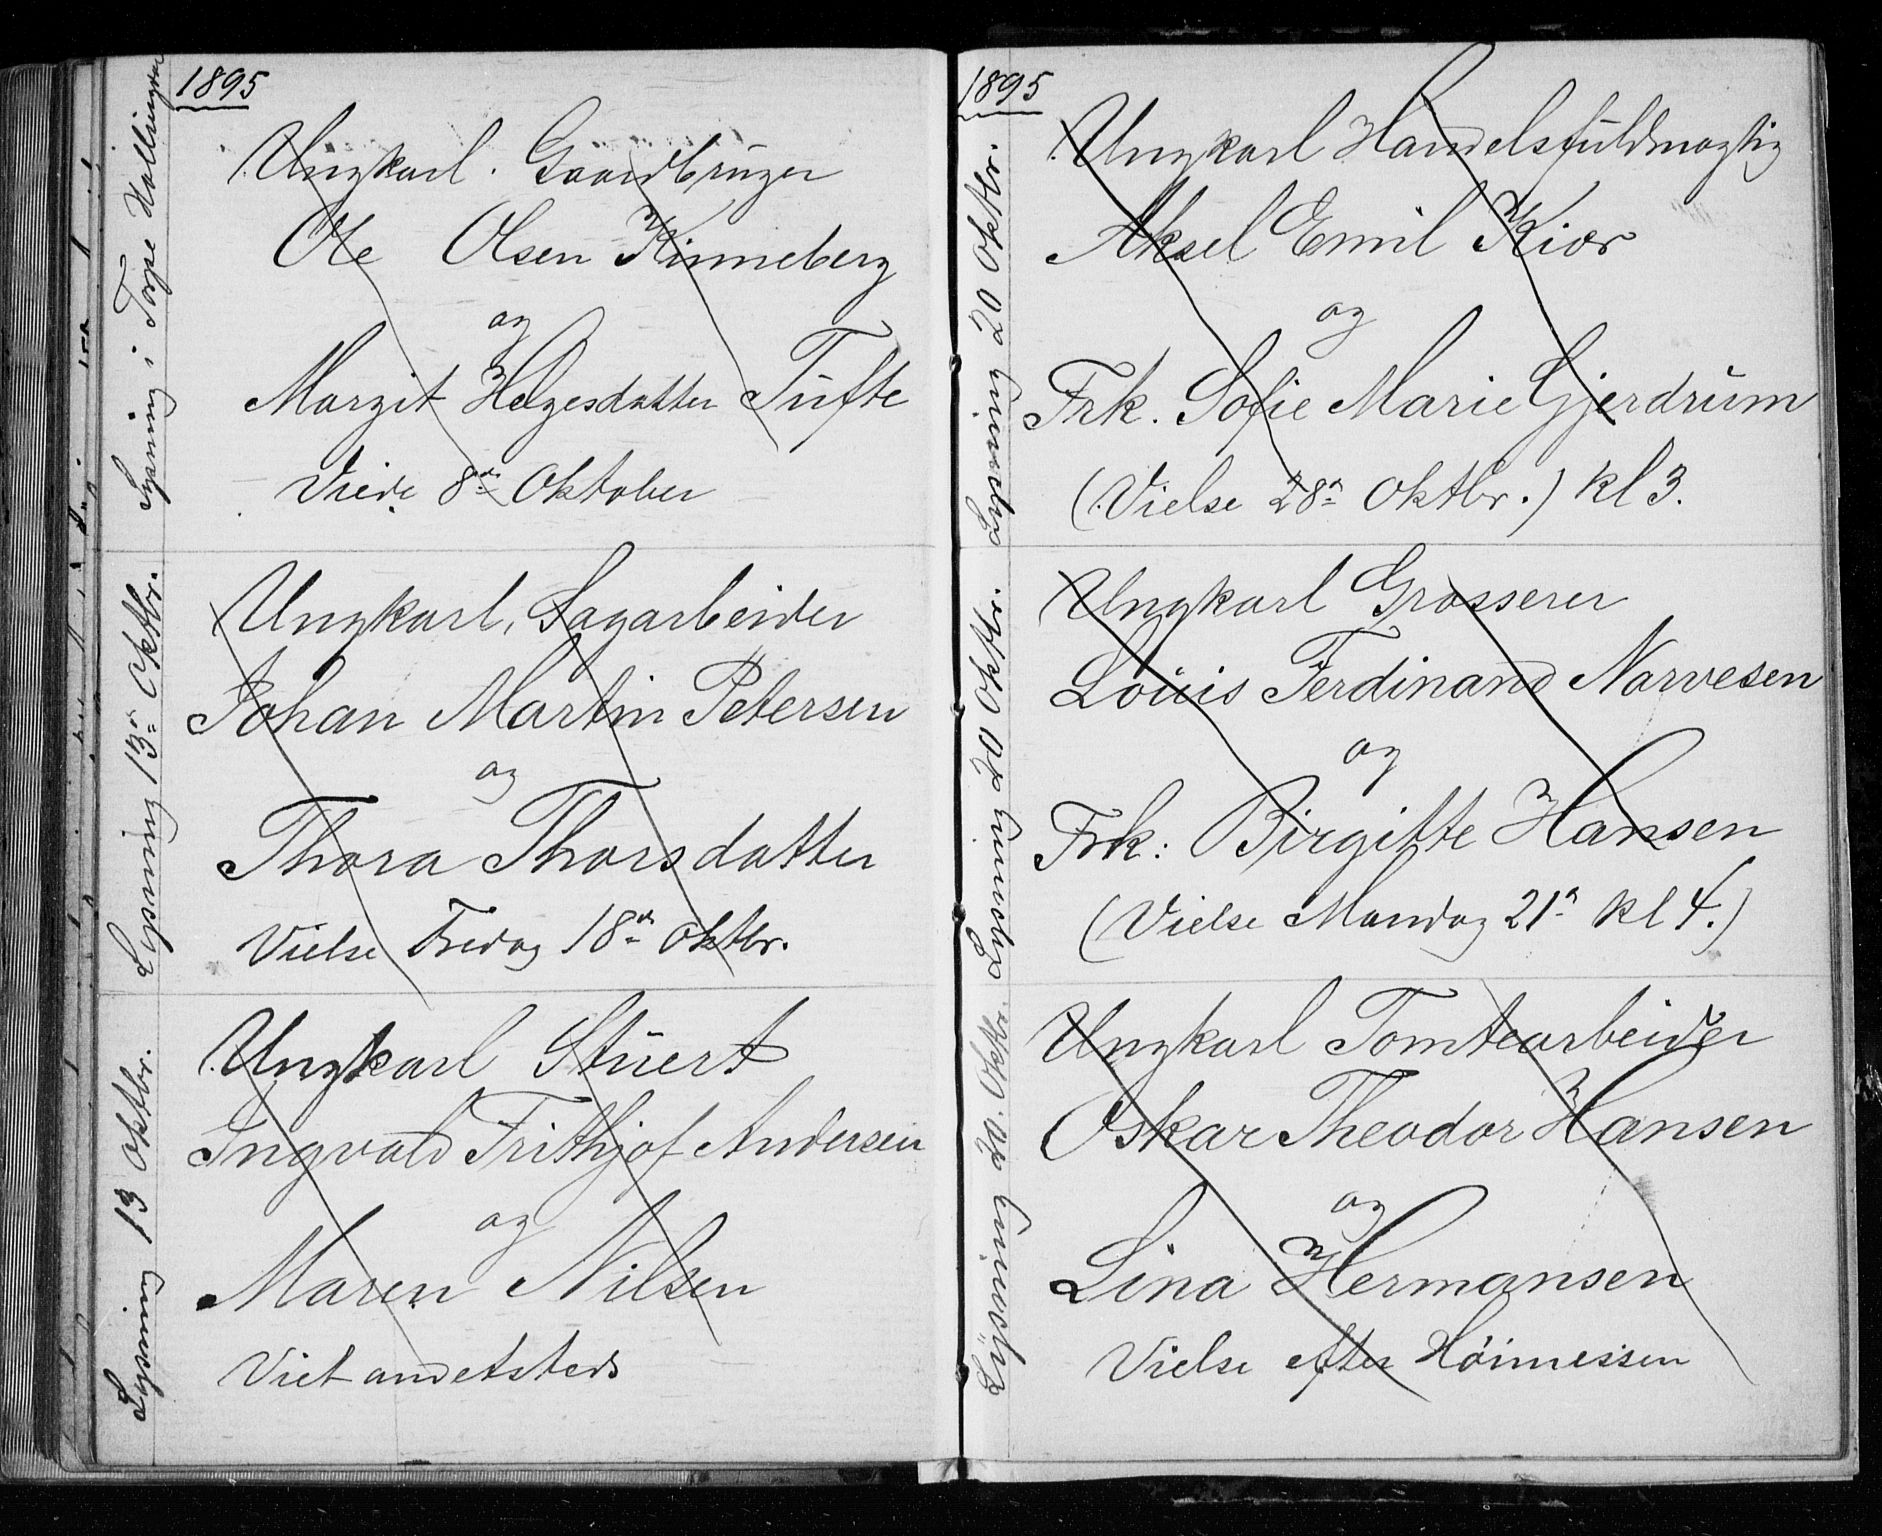 1895
Lysning i Torpe Hallingdal
Ungkarl. Gaardbruger
Ole Olsen Kinneberg
og
Margit Helgesdatter Tufte
Viede 8de Oktober
Lysning 13de Oktbr.
Ungkarl, Sagarbeider
Johan Martin Petersen
og
Thora Thorsdatter
Vielse Fredag 18de Oktbr.
Lysning 13 Oktbr.
Ungkarl Stuert
Ingvald Frithjof Andersen
og
Maren Nilsen
Viet andetsteds
1895
Lysning 20 Oktbr.
Ungkarl Handelsfuldmægtig
Aksel Emil Kiær
og
Frk. Sofie Marie Gjerdrum
(Vielse 28de Oktbr.) kl 3.
Lysning 20 Oktbr.
Ungkarl Grosserer
Louis Ferdinand Narvesen
og
Frk: Birgitte Hansen
(Vielse Mandag 21de kl 4.)
Lysning 20. Oktbr.
Ungkarl Tomtearbeider
Oskar Theodor Hansen
og
Lina Hermansen
Vielse efter Høimessen